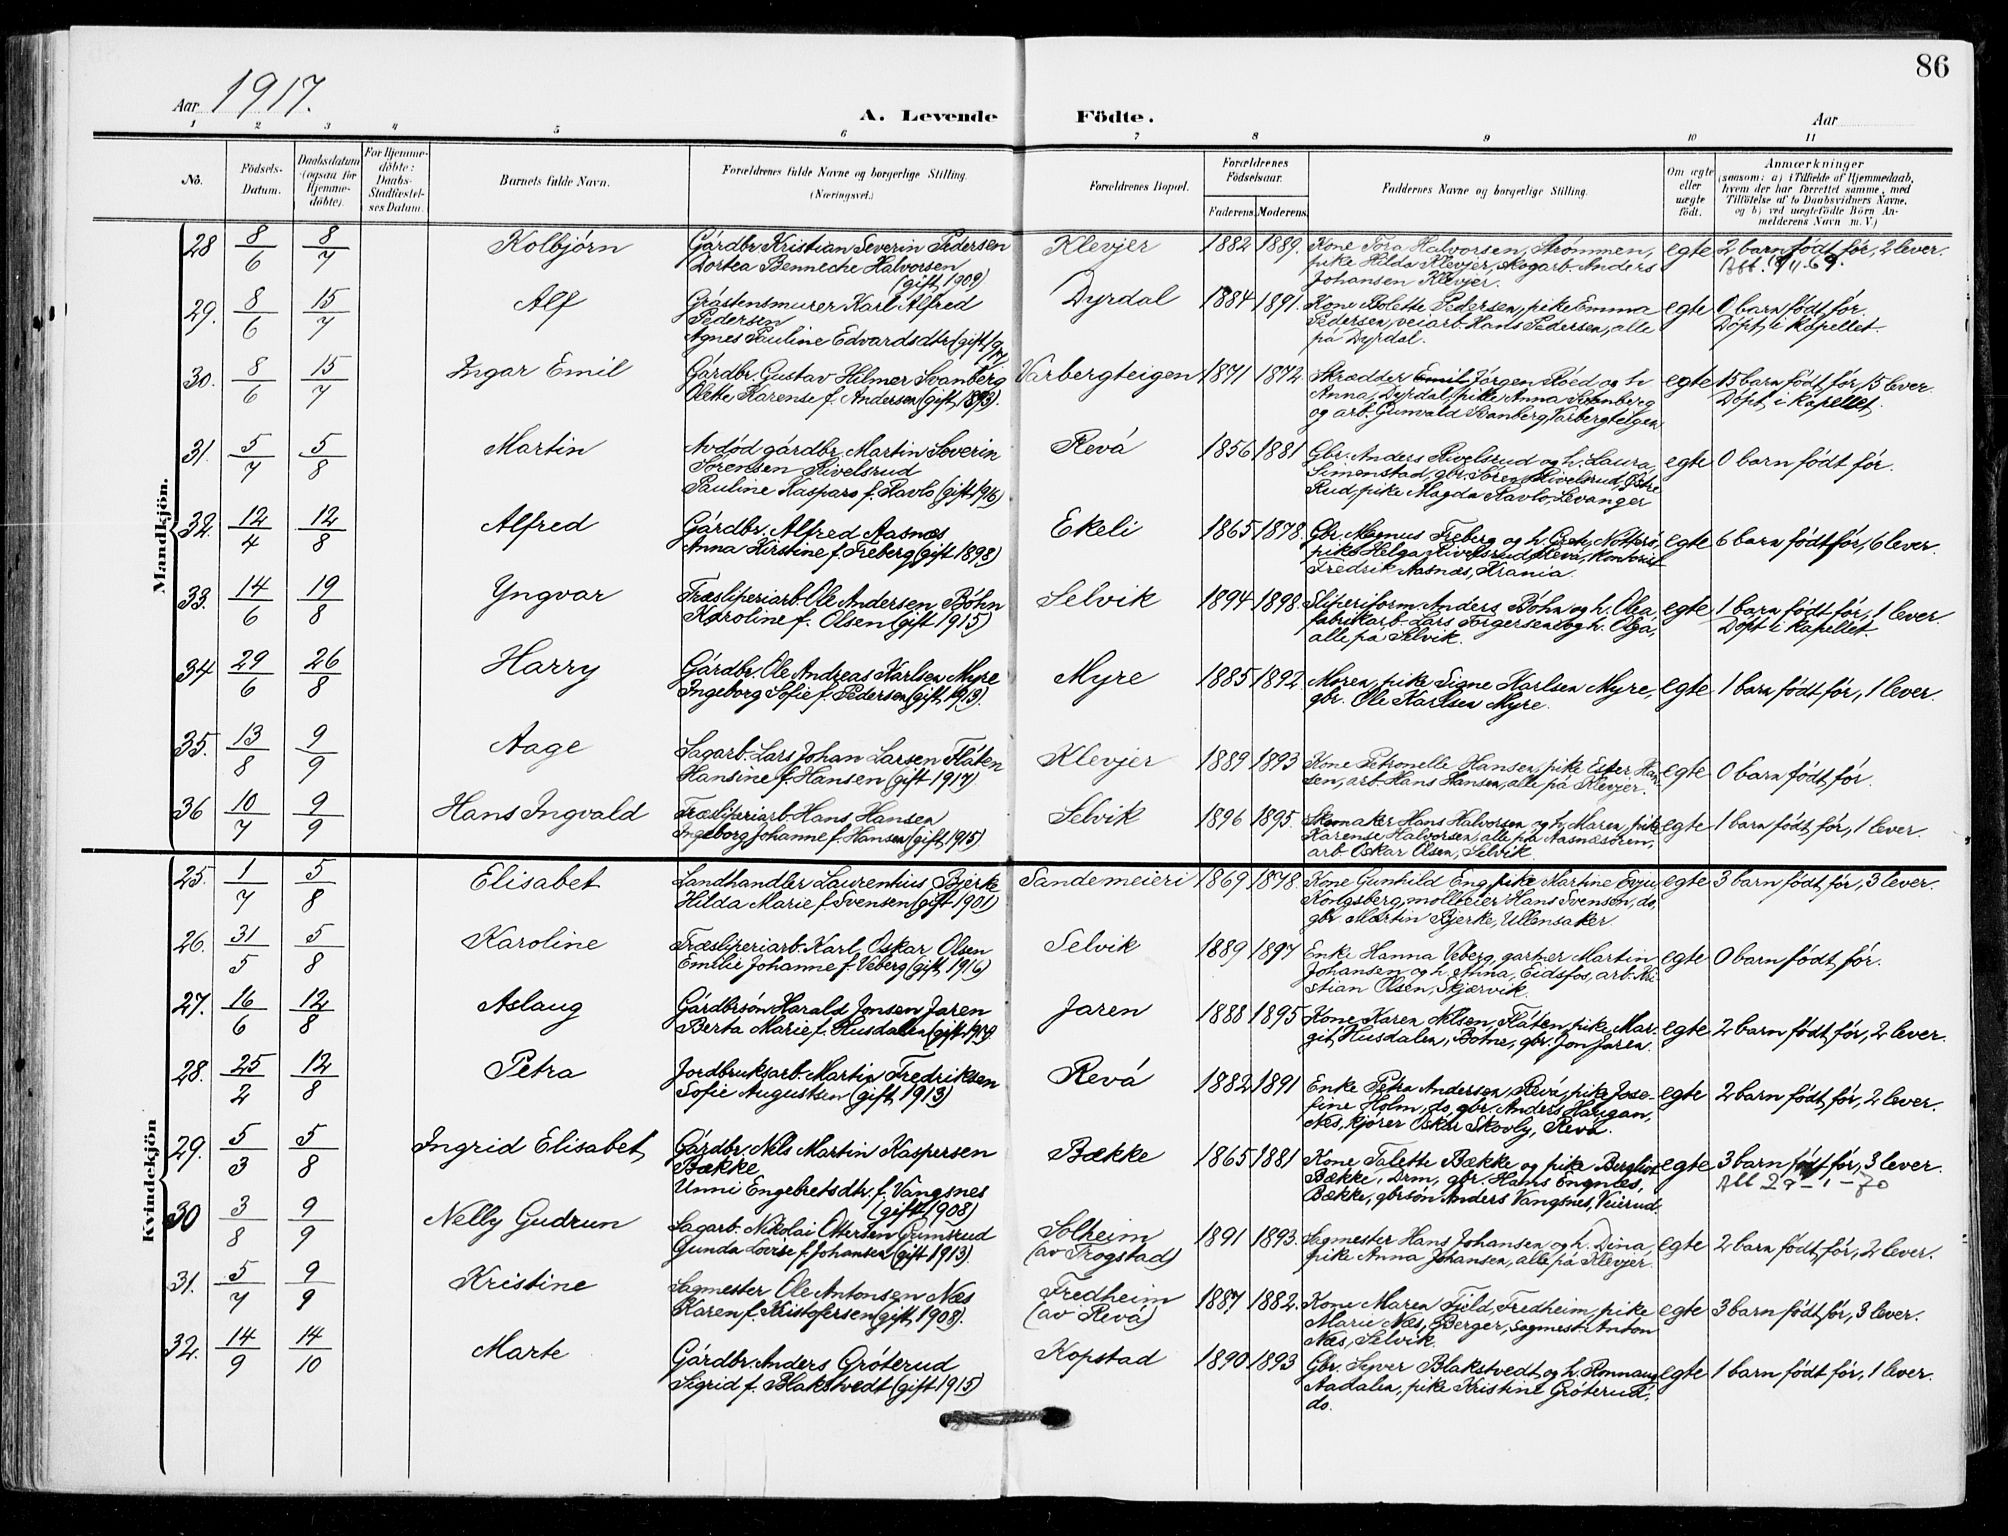 86
Aar 1917.
A. Levende Födte.
Aar
1 2 3 4 5 6 7 8 9 10 11
No.
Födsels-Datum.
Daabsdatum (ogsaa for Hjemme-döbte).
For Hjemme-döbte: Daabs-Stadfæstelses Datum.
Barnets fulde Navn.
Forældrenes fulde Navne og borgerlige Stilling.
(Næringsvei.)
Forældrenes Bopæl.
Forældrenes Födselsaar.
Faderens. Moderens.
Faddernes Navne og borgerlige Stilling.
Om ægte eller uægte födt.
Anmærkninger
(saasom: a) i Tilfælde af Hjemmedaab, hvem der har forrettet samme, med Tilföielse af to Daabsvidners Navne, og b) ved uægtefödte Börn Anmelderens Navn m. V.)
Mandkjön.
28 8/6 8/7 Kolbjørn Gårdbr. Kristian Severin Pedersen Klevjer 1882 1889. Kone Tora Halvorsen, Strømmen, egte 2 barn født før, 2 lever.
Dortea Benneche Halvorsen pike Hilda Klevjer, skogarb. Anders
(gift 1909) Johansen Klevjer.
29. 8/6 15/7 Alf Gråstensmurer Karl Alfred Dyrdal 1884 1891. Kone Bolette Pedersen, pike Emma egte 0 barn født før.
Pedersen Pedersen, veiarb. Hans Pedersen, alle Døpt i kapellet.
Agnes Pauline Edvardsdtr. (gift 1917) på Dyrdal.
30. 8/6 15/7 Ingar Emil Gårdbr. Gustav Hilmer Svanberg Varbergteigen 1871 1872. Skrædder Emil Jørgen Røed og h. egte 15 barn født før, 15 lever.
Olette Karense f. Andersen (gift 1893). Anna, Dyrdal, pike Anna Svanberg Døpt i kapellet.
og arb. Gunvald Svanberg, Varbergteigen
31. 5/7 5/8 Martin Avdød gårdbr. Martin Severin Revå 1856 1881 Gbr. Anders Rivelsrud og h. Laura, egte 0 barn født før.
Sørensen Rivelsrud Simenstad, gbr. Søren Rivelsrud, Østre
Pauline Kaspara f. Ravlo (gift 1916) Rud, pike Magda Ravlo, Levanger
32. 12/4 12/8 Alfred Gårdbr. Alfred Aasnæs Ekeli 1865 1878. Gbr. Magnus Freberg og h. egte 6 barn født før, 6 lever.
Anna Kirstine f. Freberg (gift 1898) pike Helga Rivelsrud, Revå, kontorist
Fredrik Aasnæs, Krania.
33. 14/6 19/8 Yngvar Træsliperiarb. Ole Andersen Bøhn Selvik 1894 1898. Sliperiform. Anders Bøhn og h. Olea, egte 1 barn født før, 1 lever.
Karoline f. Olsen (gift 1915) fabrikarb. Lars Torgersen og h. Olga, Døpt i kapellet.
alle på Selvik.
34 29/6 26/8 Harry Gårdbr. Ole Andreas Karlsen Myre Myre 1885 1892 Moren, pike Signe Karlsen Myre, egte 1 barn født før, 1 lever.
Ingeborg Sofie f. Pedersen (gift 1913). gbr. Ole Karlsen Myre.
35. 13/8 9/9 Aage Sagarb. Lars Johan Larsen Flåten Klevjer 1889 1893 Kone Petronelle Hansen, pike Ester Han- egte 0 barn født før
Hansine f. Hansen (gift 1917) sen, arb. Hans Hansen, alle på Klevjer.
36 10/7 9/9 Hans Ingvald Træsliperiarb. Hans Hansen Selvik 1896 1895. Skomaker Hans Halvorsen og h. Maren, pike egte 1 barn født før, 1 lever.
Ingeborg Johanne f. Hansen (gift 1915) Karense Halvorsen, alle på Aasnæsøren,
arb. Oskar Olsen, Selvik
Kvindekjön
25. 1/7 5/8 Elisabet Landhandler Laurentius Bjerke Sandemeieri 1869 1878. Kone Gunhild Eng, pike Martine Evju egte 3 barn født før, 3 lever.
Hilda Marie f. Svensen (gift 1901) Kongsberg, møllbeier Hans Svensen, do,
gbr. Martin Bjerke, Ullensaker.
26. 31/5 5/8 Karoline Træsliperiarb. Karl Oskar Olsen Selvik 1889 1897 Enke Hanna Veberg, gartner Martin egte 0 barn født før.
Emilie Johanne f. Veberg (gift 1916) Johansen og h. Anna, Eidsfos, arb. Kri-
stian Olsen, Skjærvik.
27. 16/6 12/8 Aslaug Gårdbrsøn Harald Jonsen Jaren Jaren 1888 1895 Kone Karen Nilsen, Flåten, pike Mar- egte 2 barn født før, 2 lever.
Berta Marie f. Husdalen git Husdalen, Botne, gbr. Jon Jaren.
28. 25/2 12/8 Petra Jordbruksarb. Martin Fredriksen Revå 1882 1891 Enke Petra Andersen, Revå, pike Jose- egte 2 barn født før, 2 lever.
Sofie Augustsen (gift 1913) fine Holm, do, gbr. Anders Haugan,
Nes, kjører Oskar Skovly, Revå.
29. 5/3 5/8 Ingrid Elisabet Gårdbr. Nils Martin Kaspersen Bække 1865 1881 Kone Talette Bække og pike Bergliot egte 3 barn født før, 3 lever.
Bække Bække, Drm, gbr. Hans Engnæs,
Unni Engebretsdtr. f. Vangsnes Bække, gbrsøn Anders Vangsnes, Veierud
(gift 1908)
30 3/8 9/9 Nelly Gudrun Sagarb. Nikolai Ottersen Gumsrud Solheim 1891 1893. Sagmester Hans Johansen og h. Dina, egte 2 barn født før, 2 lever.
Gunda Lovise f. Johansen (gift 1913). (av Trogstad) pike Anna Johansen, alle på Klevjer
31. 5/7 9/9 Kristine Sagmester Ole Antonsen Næs Fredheim 1887 1882. Kone Maren Fjeld, Fredheim, pike egte 3 barn født før, 3 lever.
Karen f. Kristofersen (gift 1908). (av Revå) Marie Næs, Berger, sagmest. Anton
Næs, Selvik.
32. 14/9 14/10 Marte Gårdbr. Anders Grøterud Kopstad 1890 1893 Gbr. Syver Blakstvedt og h. Ronnaug egte 1 barn født før, 1 lever.
Sigrid f. Blakstvedt (gift 1915) Aadalen, pike Kristine Grøterud,
do.